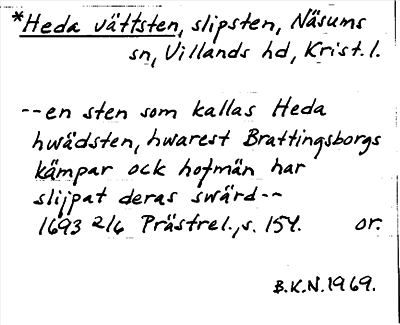 *Heda vättsten, slipsten, Näsums
sn, Villands hd, Krist. l.
--en sten som kallas Heda
hwädsten, hwarest Brattingsborgs
kämpar ock hofmän har
slijpat deras swärd--
1693 2/6 Prästrel., s. 154. or.
B.K.N. 1969.